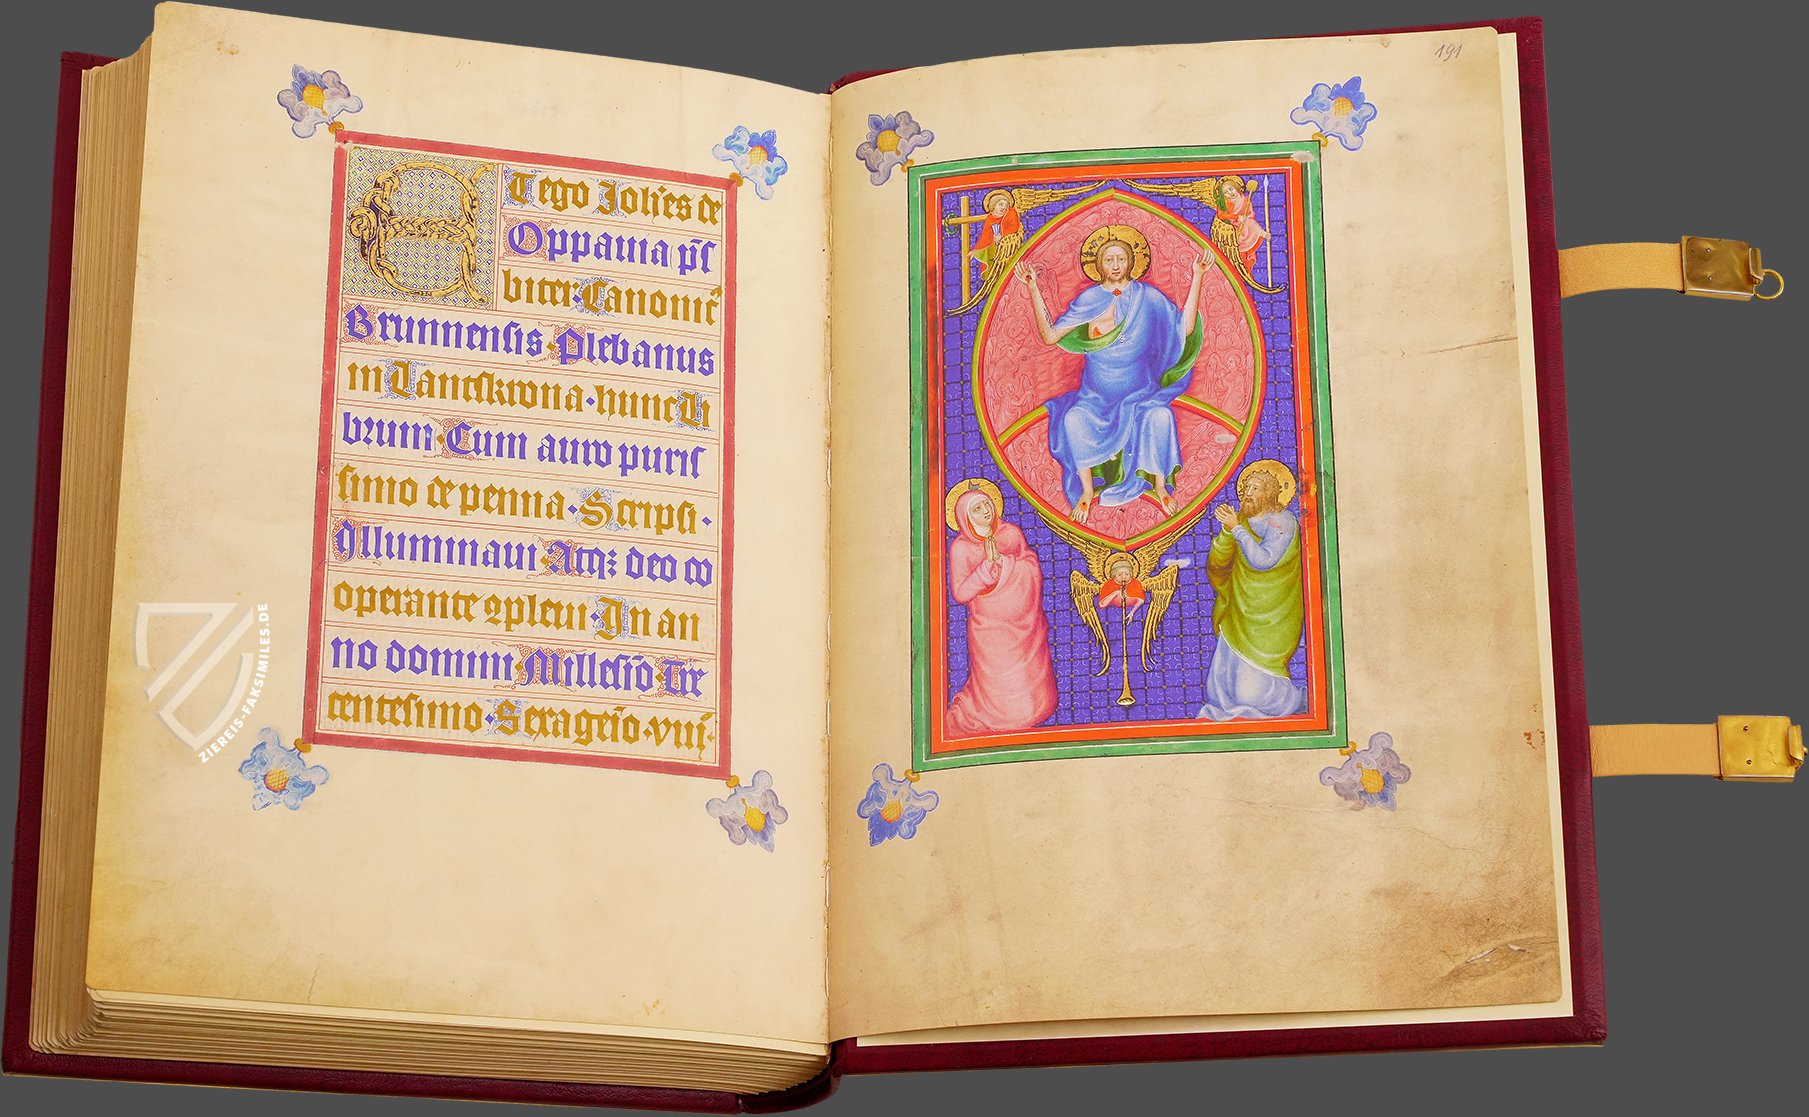 Et ego Joh̄es de
Oppauia p̄s
biter·Canonic̄
Brunnensis·Plebanus
in Lantskrona·hunc li
brum·Cum auro puris
simo de penna·Scripsi·
Illuminaui·Atqꝫ deo co
operante ꝯpleui·In an
no domini·Millesīo·Tre
centesimo·Sexagesīo·viii·
191
ZIEREIS-FAKSIMILES.DE